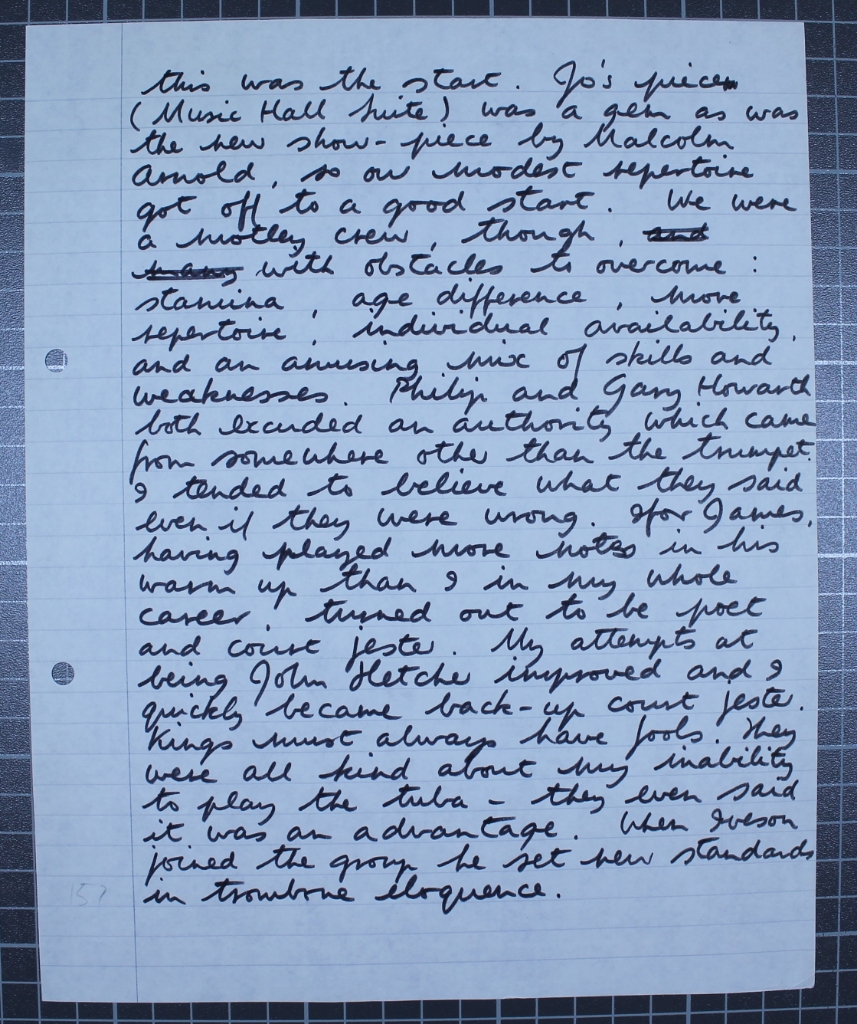 this was the start. Jo's piece
(Music Hall Suite) was a gem as was
the new show-piece by Malcolm
Arnold, so our modest repertoire
got off to a good start. We were
a motley crew, though, and
many with obstacles to overcome:
stamina, age difference, more
repertoire, individual availability,
and an amusing mix of skills and
weaknesses. Philip and Gary Howarth
both exuded an authority which came
from somewhere other than the trumpet.
I tended to believe what they said
even if they were wrong. Ifor James,
having played more notes in his
warm up than I in my whole
career, turned out to be poet
and court jester. My attempts at
being John Fletcher improved and I
quickly became back-up court jester.
Kings must always have fools. They
were all kind about my inability
to play the tuba - they even said
it was an advantage. When Iveson
joined the group he set new standards
in trombone eloquence.
157